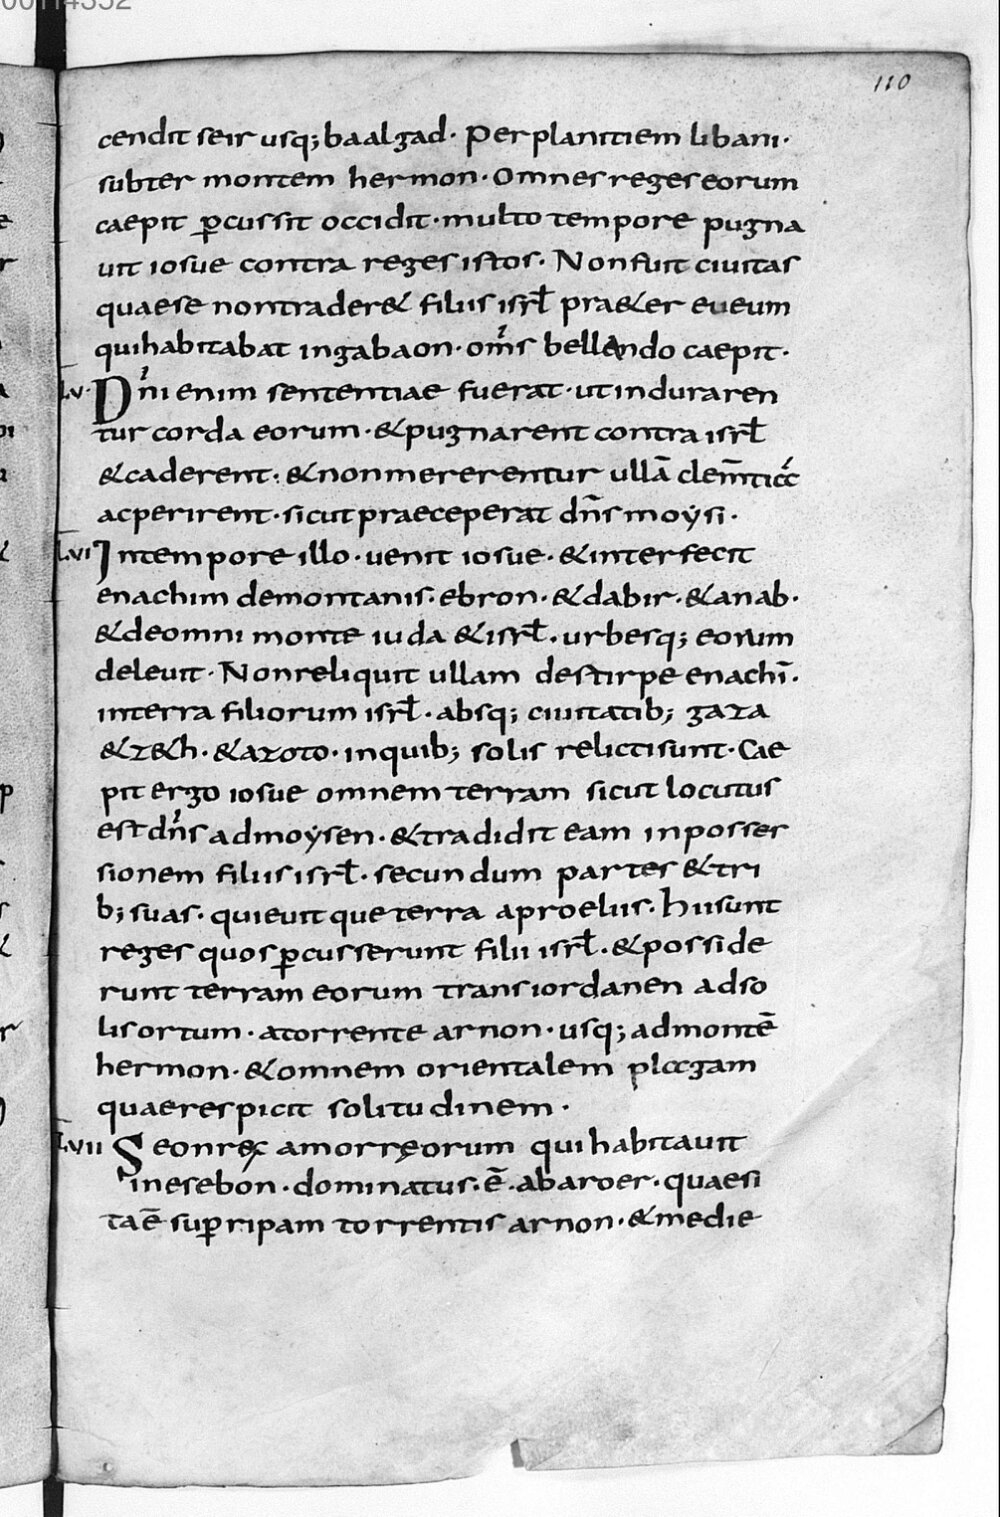 110
cendit seir usq; baalgad· Per planitiem libani·
subter montem hermon· Omnes reges eorum
caepit p̲cussit occidit· multo tempore pugna
uit iosue contra reges istos· Non fuit ciuitas
quae se non trader& filiis isrl̄ pra&er eueum
qui habitabat in gabaon· om̄s bellando caepit·
L.V· Dn̄i enim sententiae fuerat· ut induraren
tur corda eorum· & pugnarent contra isrl̄
& caderent· & non mererentur ullā clem̄tiā
ac perirent· sicut praeceperat dn̄s moysi·
L.VI In tempore illo· uenit iosue· & interfecit
enachim de montanis· ebron· & dabir· & anab·
& de omni monte iuda & isrl̄· urbesq; eorum
deleuit· Non reliquit ullam de stirpe enachī·
in terra filiorum isrl̄· absq; ciuitatib; gaza
& z&h· & azoto· in quib; solis relicti sunt· Cae
pit ergo iosue omnem terram sicut locutus
est dn̄s ad moysen· & tradidit eam in posses
sionem filiis isrl̄· secundum partes & tri
b; suas· quieuit que terra a proeliis· Hii sunt
reges quos p̲cusserunt filii isrl̄· & posside
runt terram eorum trans iordanen ad so
lis ortum· a torrente arnon· usq; ad montē
hermon· & omnem orientalem plagam
quae respicit solitudinem·
L.VII Seon rex amorręorum qui habitauit
in esebon· dominatus· ē· ab aroer· quae si
ta ē sup̲ ripam torrentis arnon· & medie